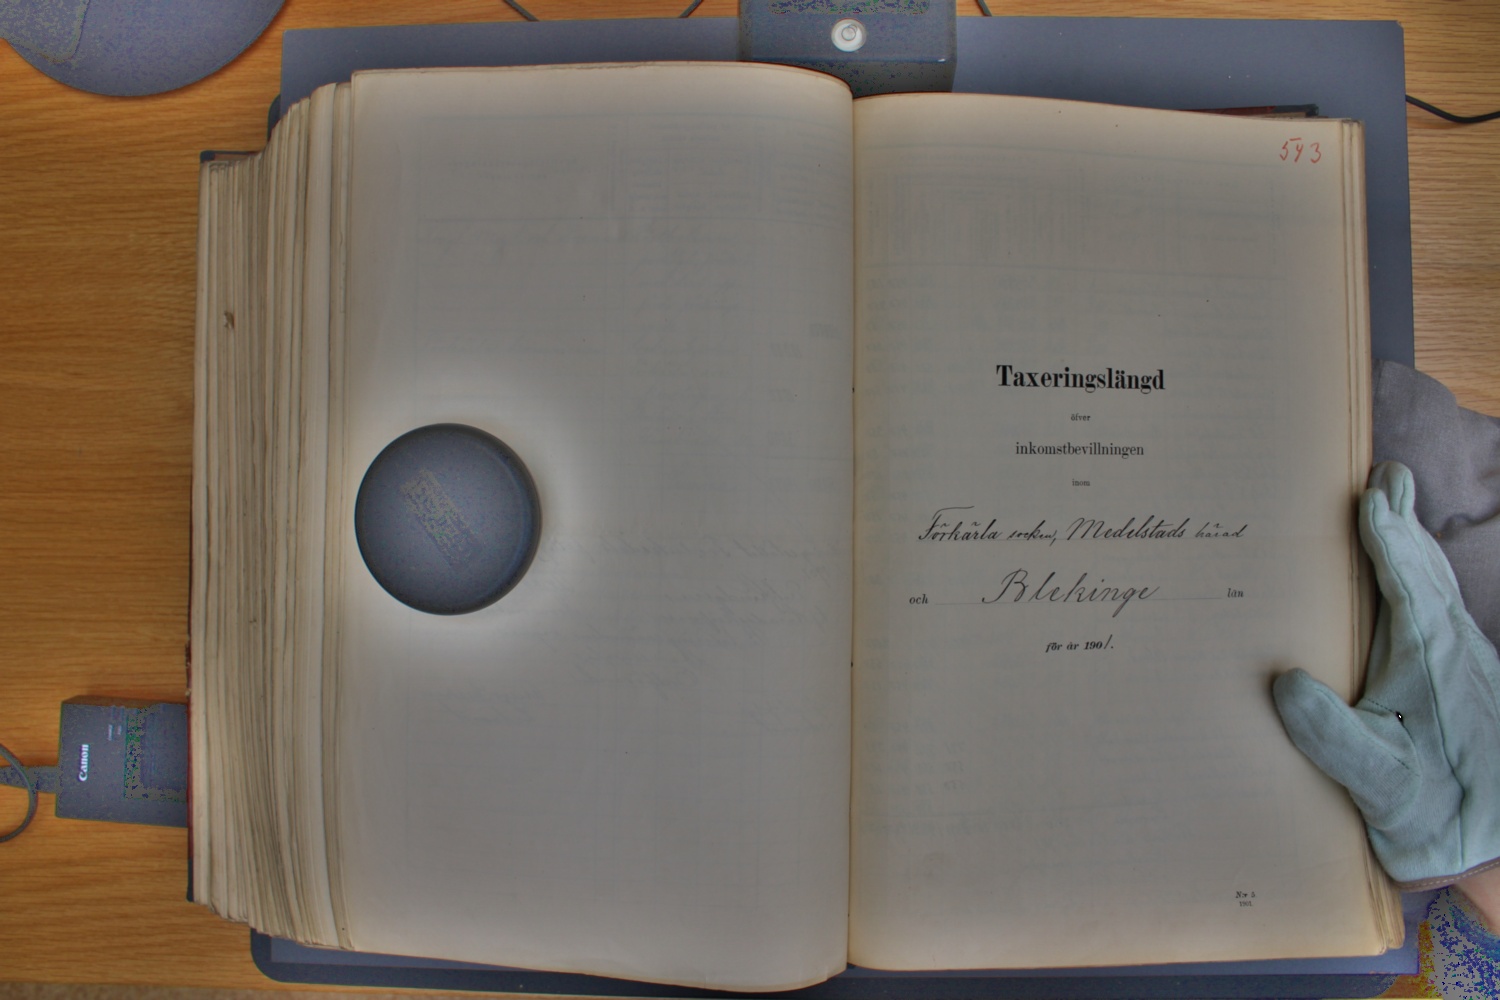 543
Taxeringslängd
öfver
inkomstbevillningen
inom
Förkärla socken, Medelstads härad
och Blekinge län
för år 1901.
N:r 5
1901
Canon